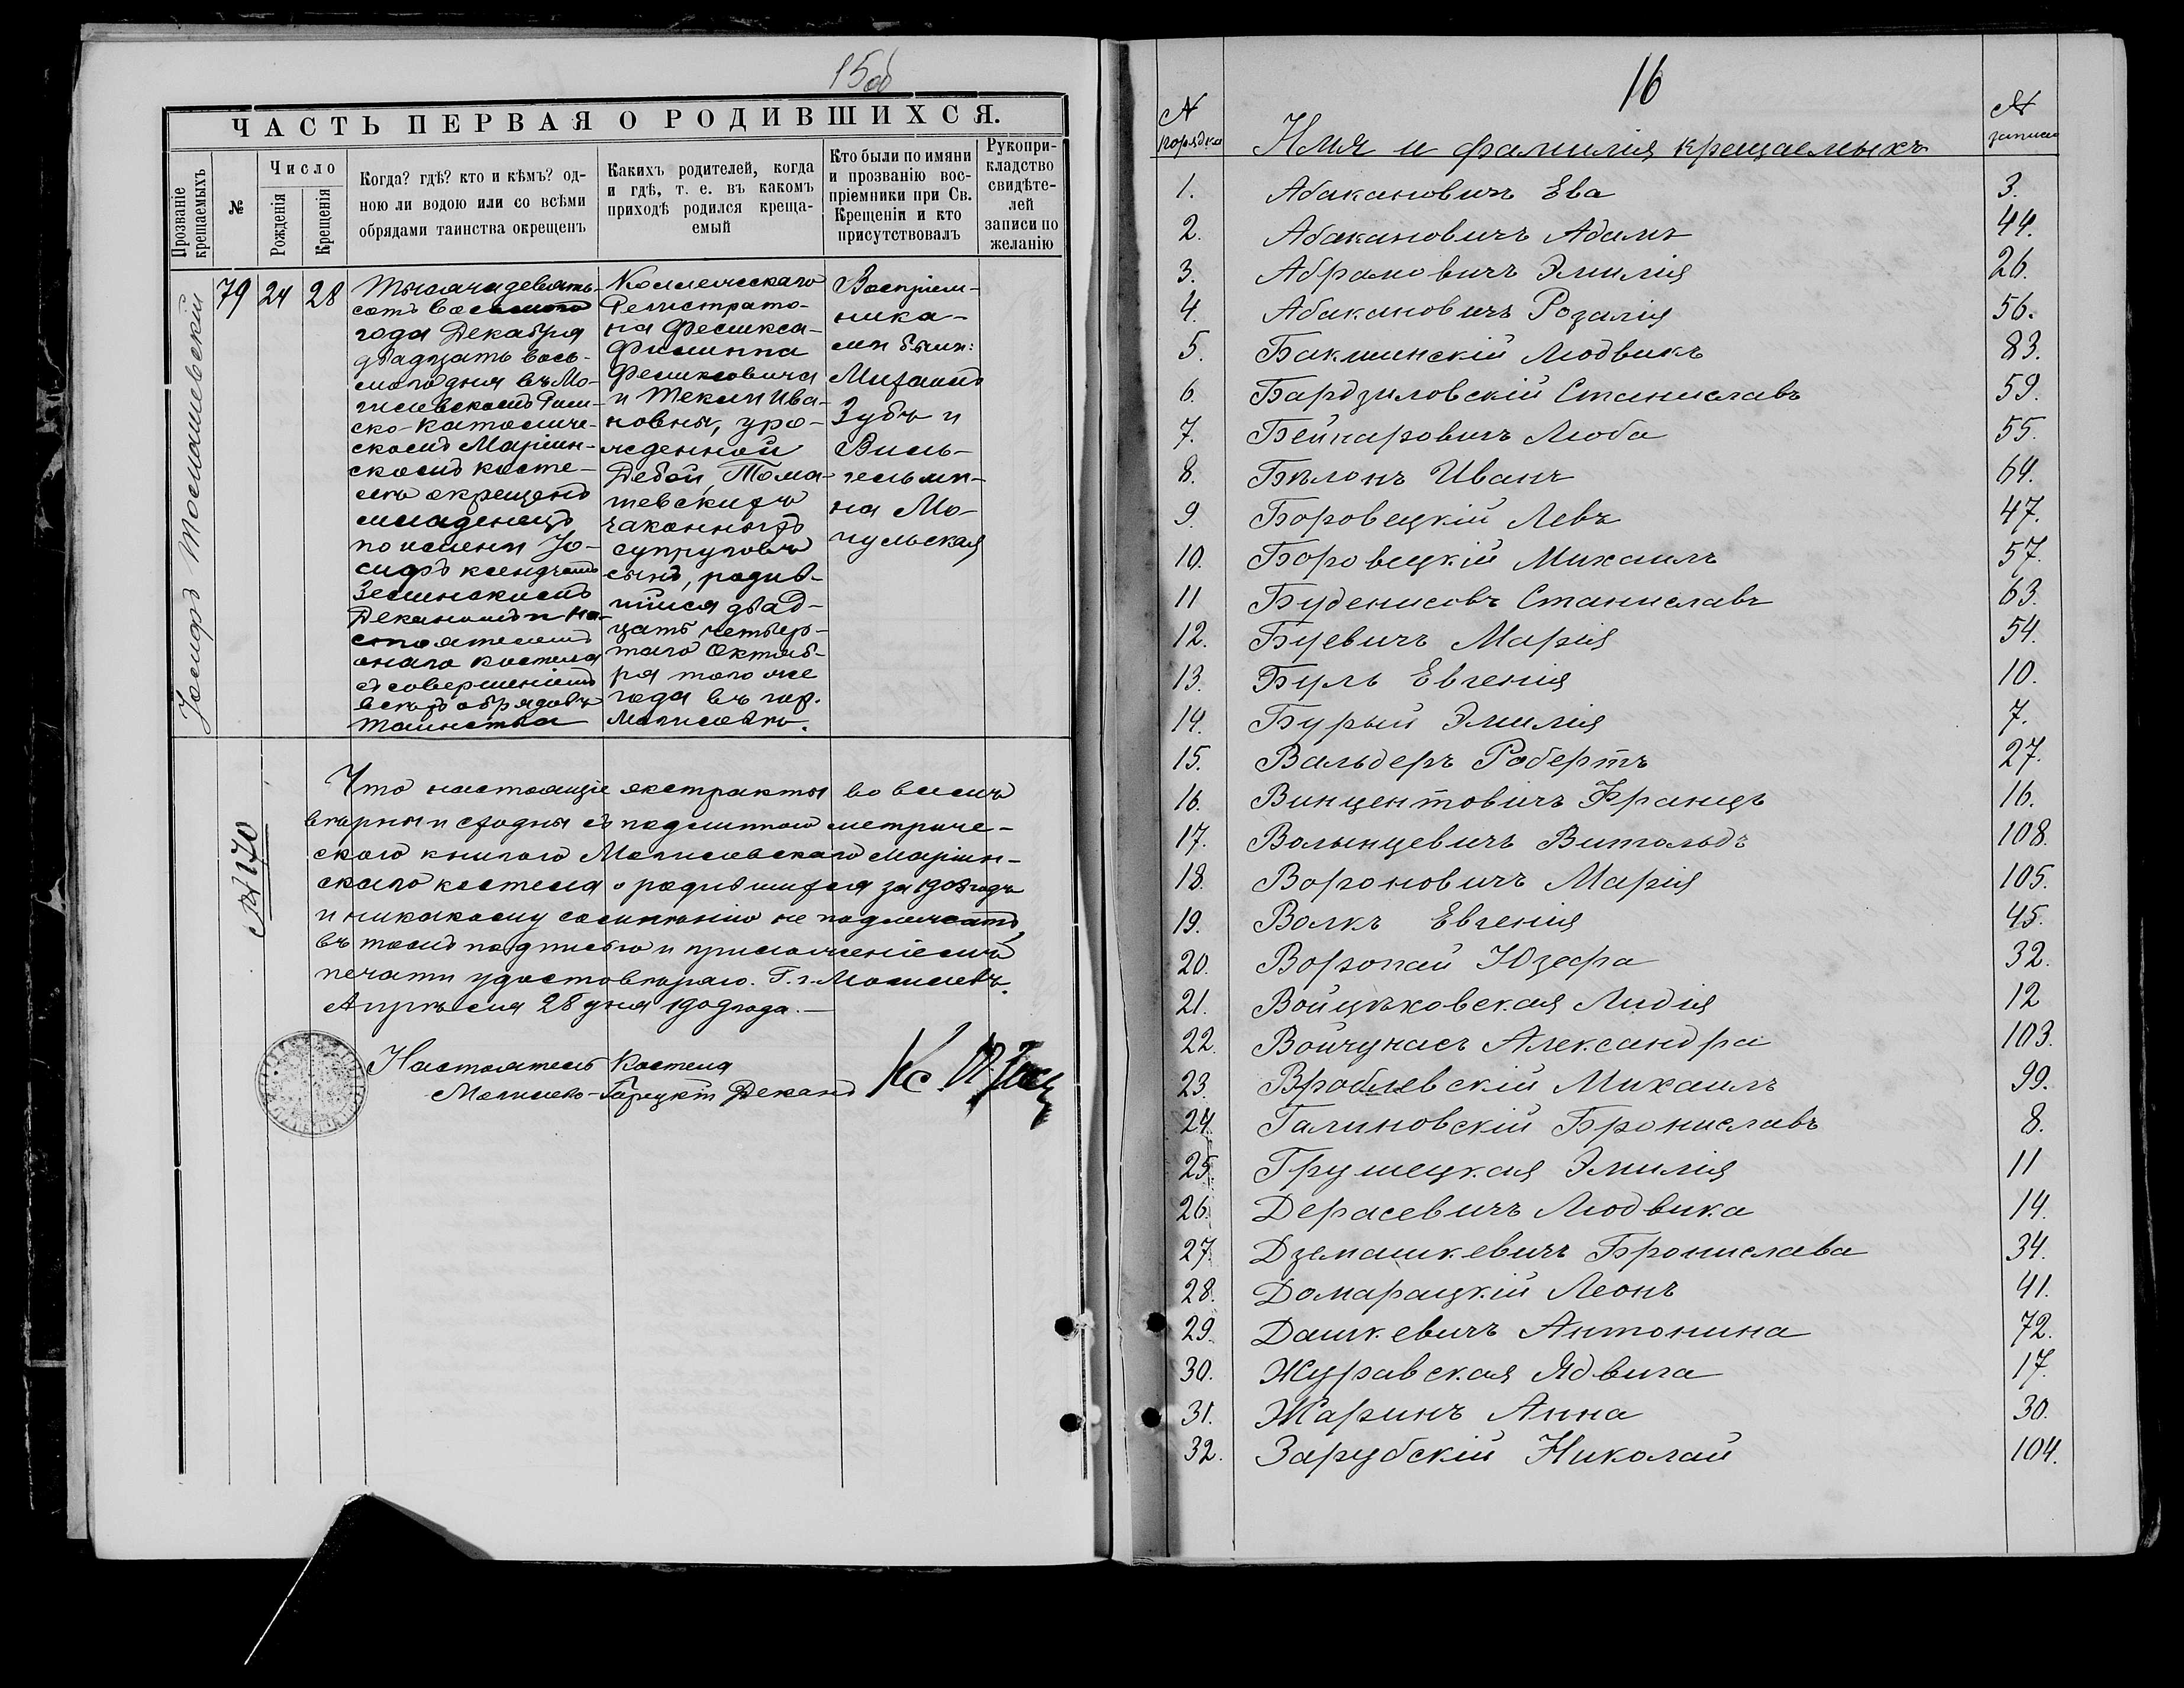 15об
ЧАСТЬ ПЕРВАЯ О РОДИВШИХСЯ.
Прозваніе крещаемыхъ
№
Число
Рожденія
Крещенія
Когда? гдѣ? кто и кѣмъ? од-
ною ли водою или со всѣми
обрядами таинства окрещенъ
Какихъ родителей, когда
и гдѣ, т. е. въ какомъ
приходѣ родился креща-
емый
Кто были по имяни
и прозванію вос-
пріемники при Св.
Крещеніи и кто
присутствовалъ
Рукопри-
кладство
свидѣте-
лей
записи по
желанію
Іосифъ Томашевскій
79
24
28
Тысяча девять-
сотъ восьмого
года Декабря
двадцать вось-
мого дня въ Мо-
гилевскомъ Рим-
ско-Католиче-
скомъ Маріин-
скомъ косте-
лѣ окрещенъ
младенецъ
по имени Іо-
сифъ ксендзомъ
Зелинскимъ
Деканомъ и На-
стоятелемъ
онаго костела
съ совершеніемъ
всѣхъ обрядовъ
таинства
Коллежскаго
Регистрато-
ра Феликса-
Филиппа
Феликсовича
и Теклии Ива-
новны, уро-
жденной
Дебой, Тома-
шевскихъ
законныхъ
супруговъ
сынъ, родив-
шійся двад-
цать четвер-
таго Октяб-
ря того же
года въ гор.
Могилевѣ.
Воспріем-
ника-
ми были:
Михаилъ
Зубъ и
Виль-
гельми-
на Мо-
гульская
№ 170
Что настоящіе экстракты во всемъ
вѣрны и сходны съ подлинною метриче-
скою книгою Могилевскаго Маріин-
скаго костела о родившихся за 1908 годъ
и никакому сомнѣнію не подлежатъ,
въ томъ подписью и приложеніемъ
печати удостовѣряю. Г. г. Могилевъ.
Апрѣля 28 дня 1909 года.
Настоятель Костела
Могилево-Горецкій Деканъ
Кс
16
№
порядка
Имя и фамилія крещаемыхъ
№
записи
1. Абакановичъ Ева 3.
2. Абакановичъ Адамъ 44.
3. Абрамовичъ Эмилія 26.
4. Абакановичъ Розалія 56.
5. Бакшинскій Людвикъ 83.
6. Бардзиловскій Станиславъ 59.
7. Бейнаровичъ Люба 55.
8. Бѣлонъ Иванъ 64.
9. Боровецкій Левъ 47.
10. Боровецкій Михаилъ 57.
11 Буденисовъ Станиславъ 63.
12. Буевичъ Марія 54.
13. Буль Евгенія 10.
14. Бурый Эмилія 7.
15. Вальдеръ Робертъ 27.
16. Винцентовичъ Францъ 16.
17. Волынцевичъ Витольдъ 108.
18. Вороновичъ Марія 105.
19. Волкъ Евгенія 45.
20. Воропай Юзефа 32.
21. Войцѣховская Лидія 12
22. Войчунасъ Александра 103.
23. Вроблевскій Михаилъ 99.
24. Галиновскій Брониславъ 8.
25. Грушецкая Эмилія 11
26. Дерасевичъ Людвика 14.
27. Дземашкевичъ Бронислава 34.
28. Домарацкій Леонъ 41.
29. Дашкевичъ Антонина 72.
30. Журавская Ядвига 17.
31. Жаринъ Анна 30.
32. Зарубскій Николай 104.